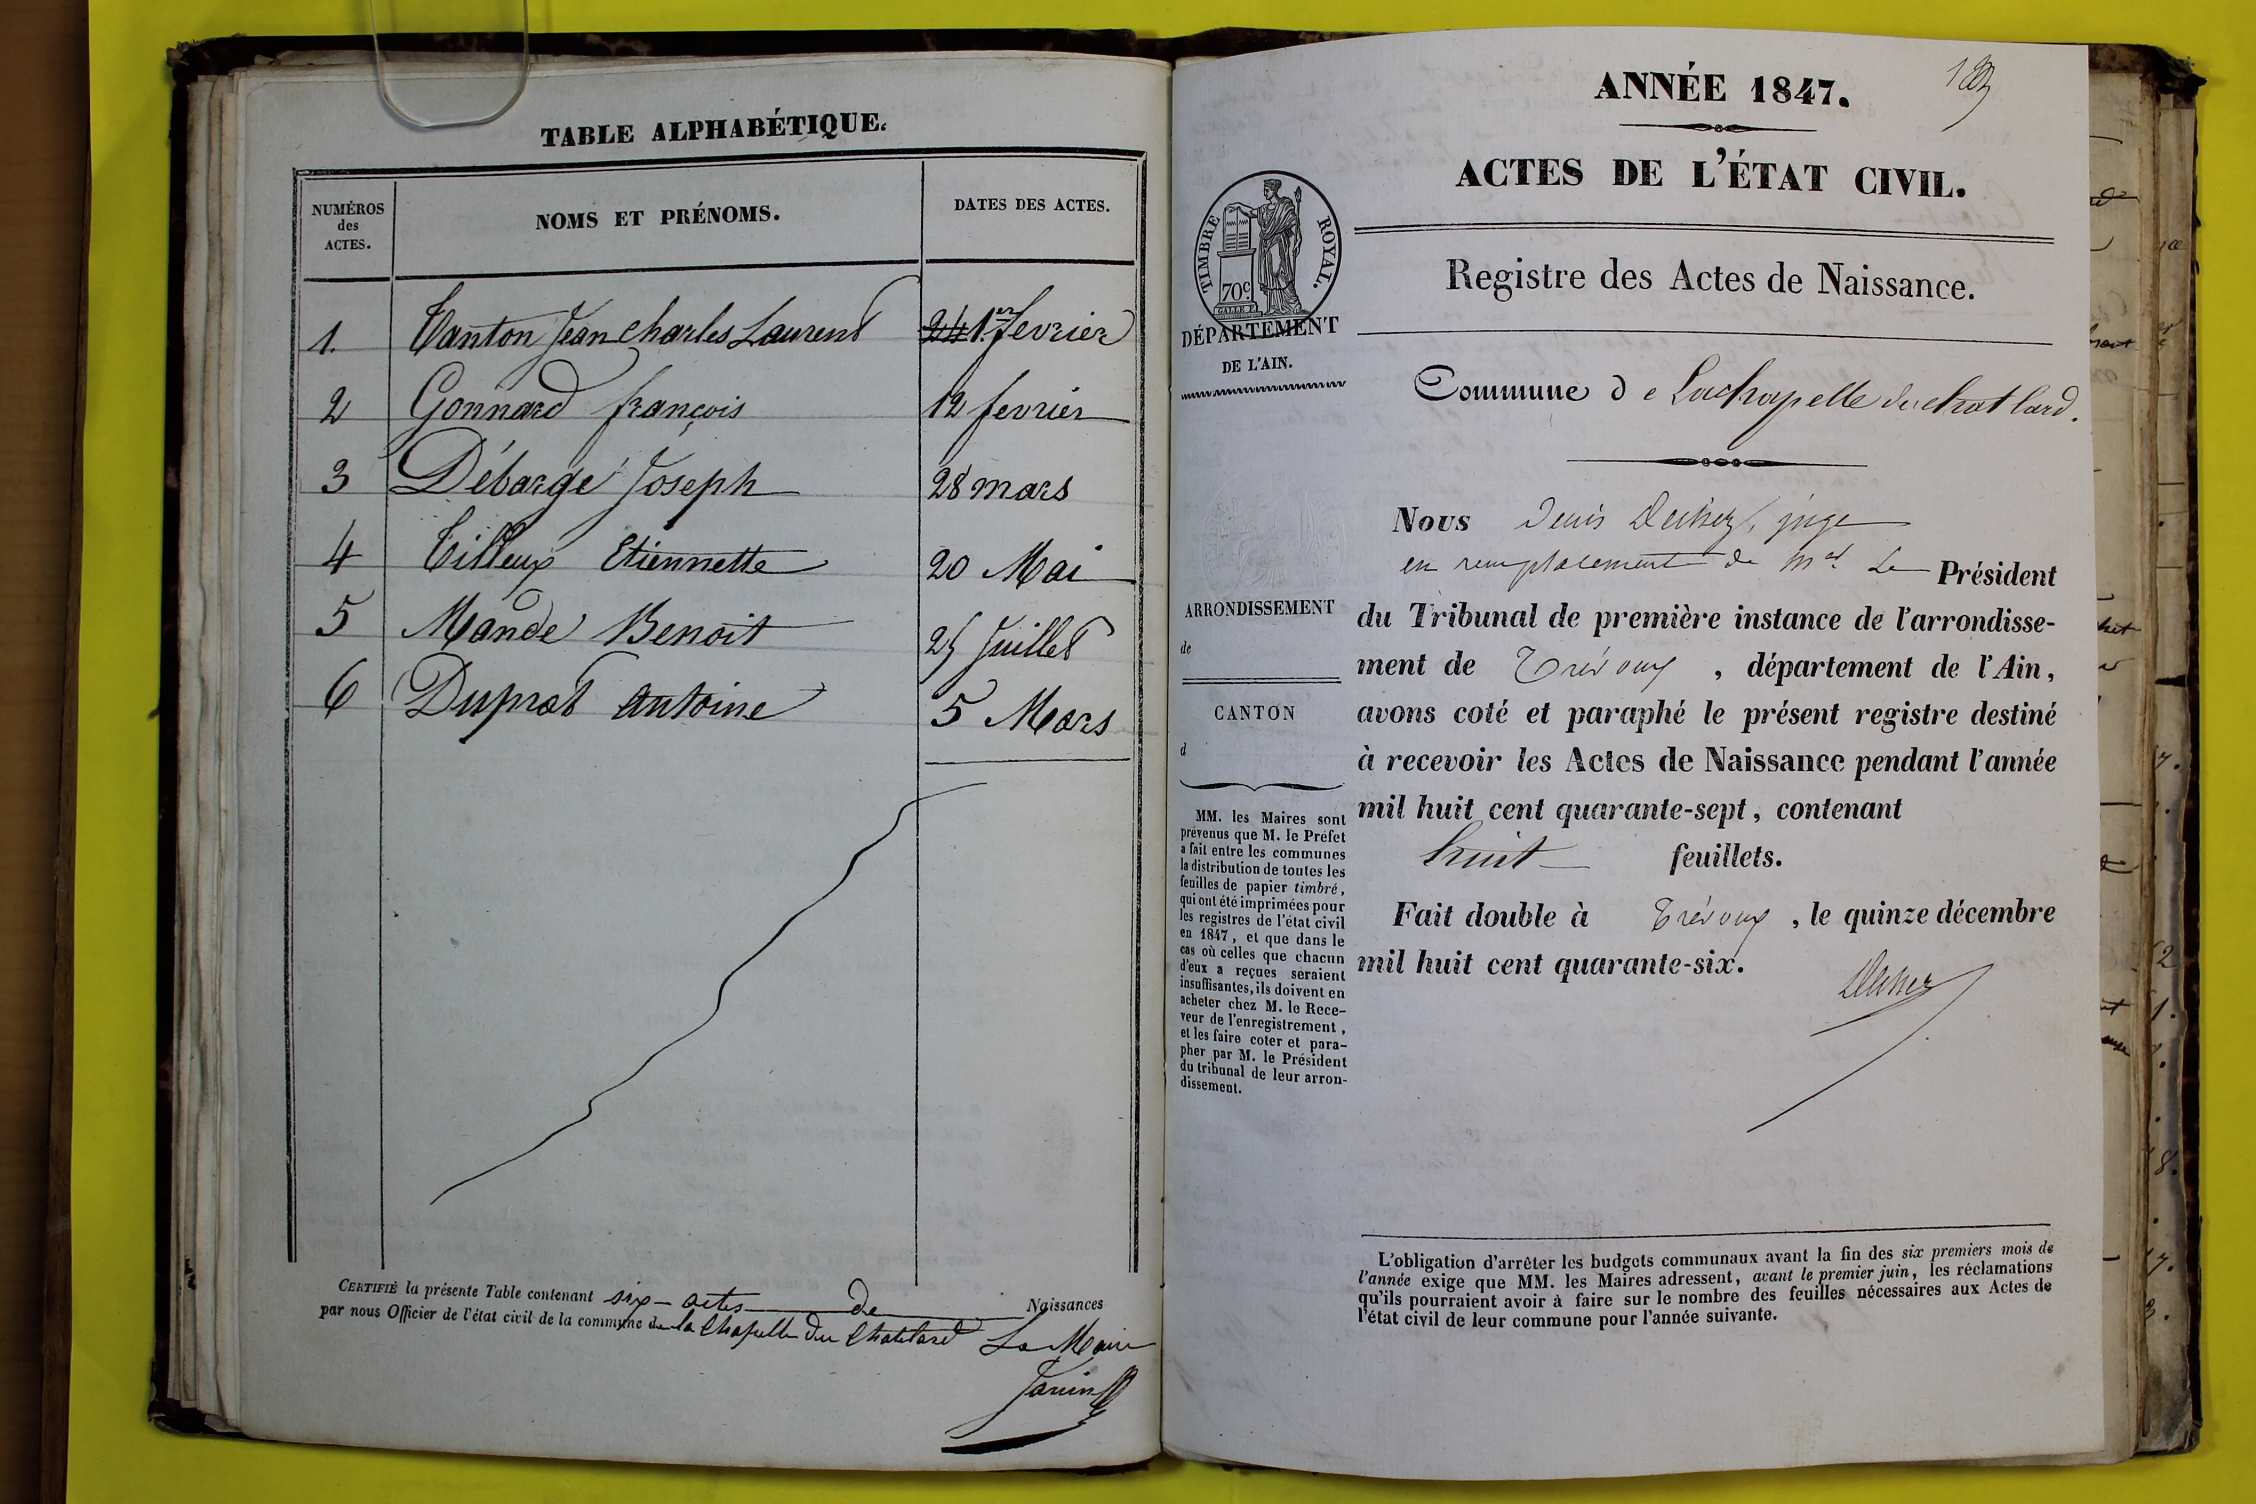 TABLE ALPHABÉTIQUE.
NUMÉROS
des
ACTES.
NOMS ET PRÉNOMS.
DATES DES ACTES.
1. Tanton Jean Charles Laurent 24 1.er fevrier
2 Gonnard françois 12 fevrier
3 Débarge Joseph 28 mars
4 Tilleux Etiennette 20 Mai
5 Mande Benoit 25 Juillet
6 Duprat Antoine 5 Mars
CERTIFIÉ la présente Table contenant six actes de Naissances
par nous Officier de l'état civil de la commune de la Chapelle du Chatelard Le Maire
Janin
ANNÉE 1847.
ACTES DE L'ÉTAT CIVIL.
Registre des Actes de Naissance.
TIMBRE ROYAL.
70c.
DÉPARTEMENT
DE L'AIN.
Commune de Lachapelle du chatlard.
ARRONDISSEMENT
de
CANTON
d
MM. les Maires sont
prévenus que M. le Préfet
a fait entre les communes
la distribution de toutes les
feuilles de papier timbré,
qui ont été imprimées pour
les registres de l'état civil
en 1847, et que dans le
cas où celles que chacun
d'eux a reçues seraient
insuffisantes, ils doivent en
acheter chez M. le Rece-
veur de l'enregistrement,
et les faire coter et para-
pher par M. le Président
du tribunal de leur arron-
dissement.
Nous Denis juge
en remplacement de Mr Le Président
du Tribunal de première instance de l'arrondisse-
ment de Trévoux, département de l'Ain,
avons coté et paraphé le présent registre destiné
à recevoir les Actes de Naissance pendant l'année
mil huit cent quarante-sept, contenant
huit feuillets.
Fait double à Trévoux, le quinze décembre
mil huit cent quarante-six.
L'obligation d'arrêter les budgets communaux avant la fin des six premiers mois de
l'année exige que MM. les Maires adressent, avant le premier juin, les réclamations
qu'ils pourraient avoir à faire sur le nombre des feuilles nécessaires aux Actes de
l'état civil de leur commune pour l'année suivante.